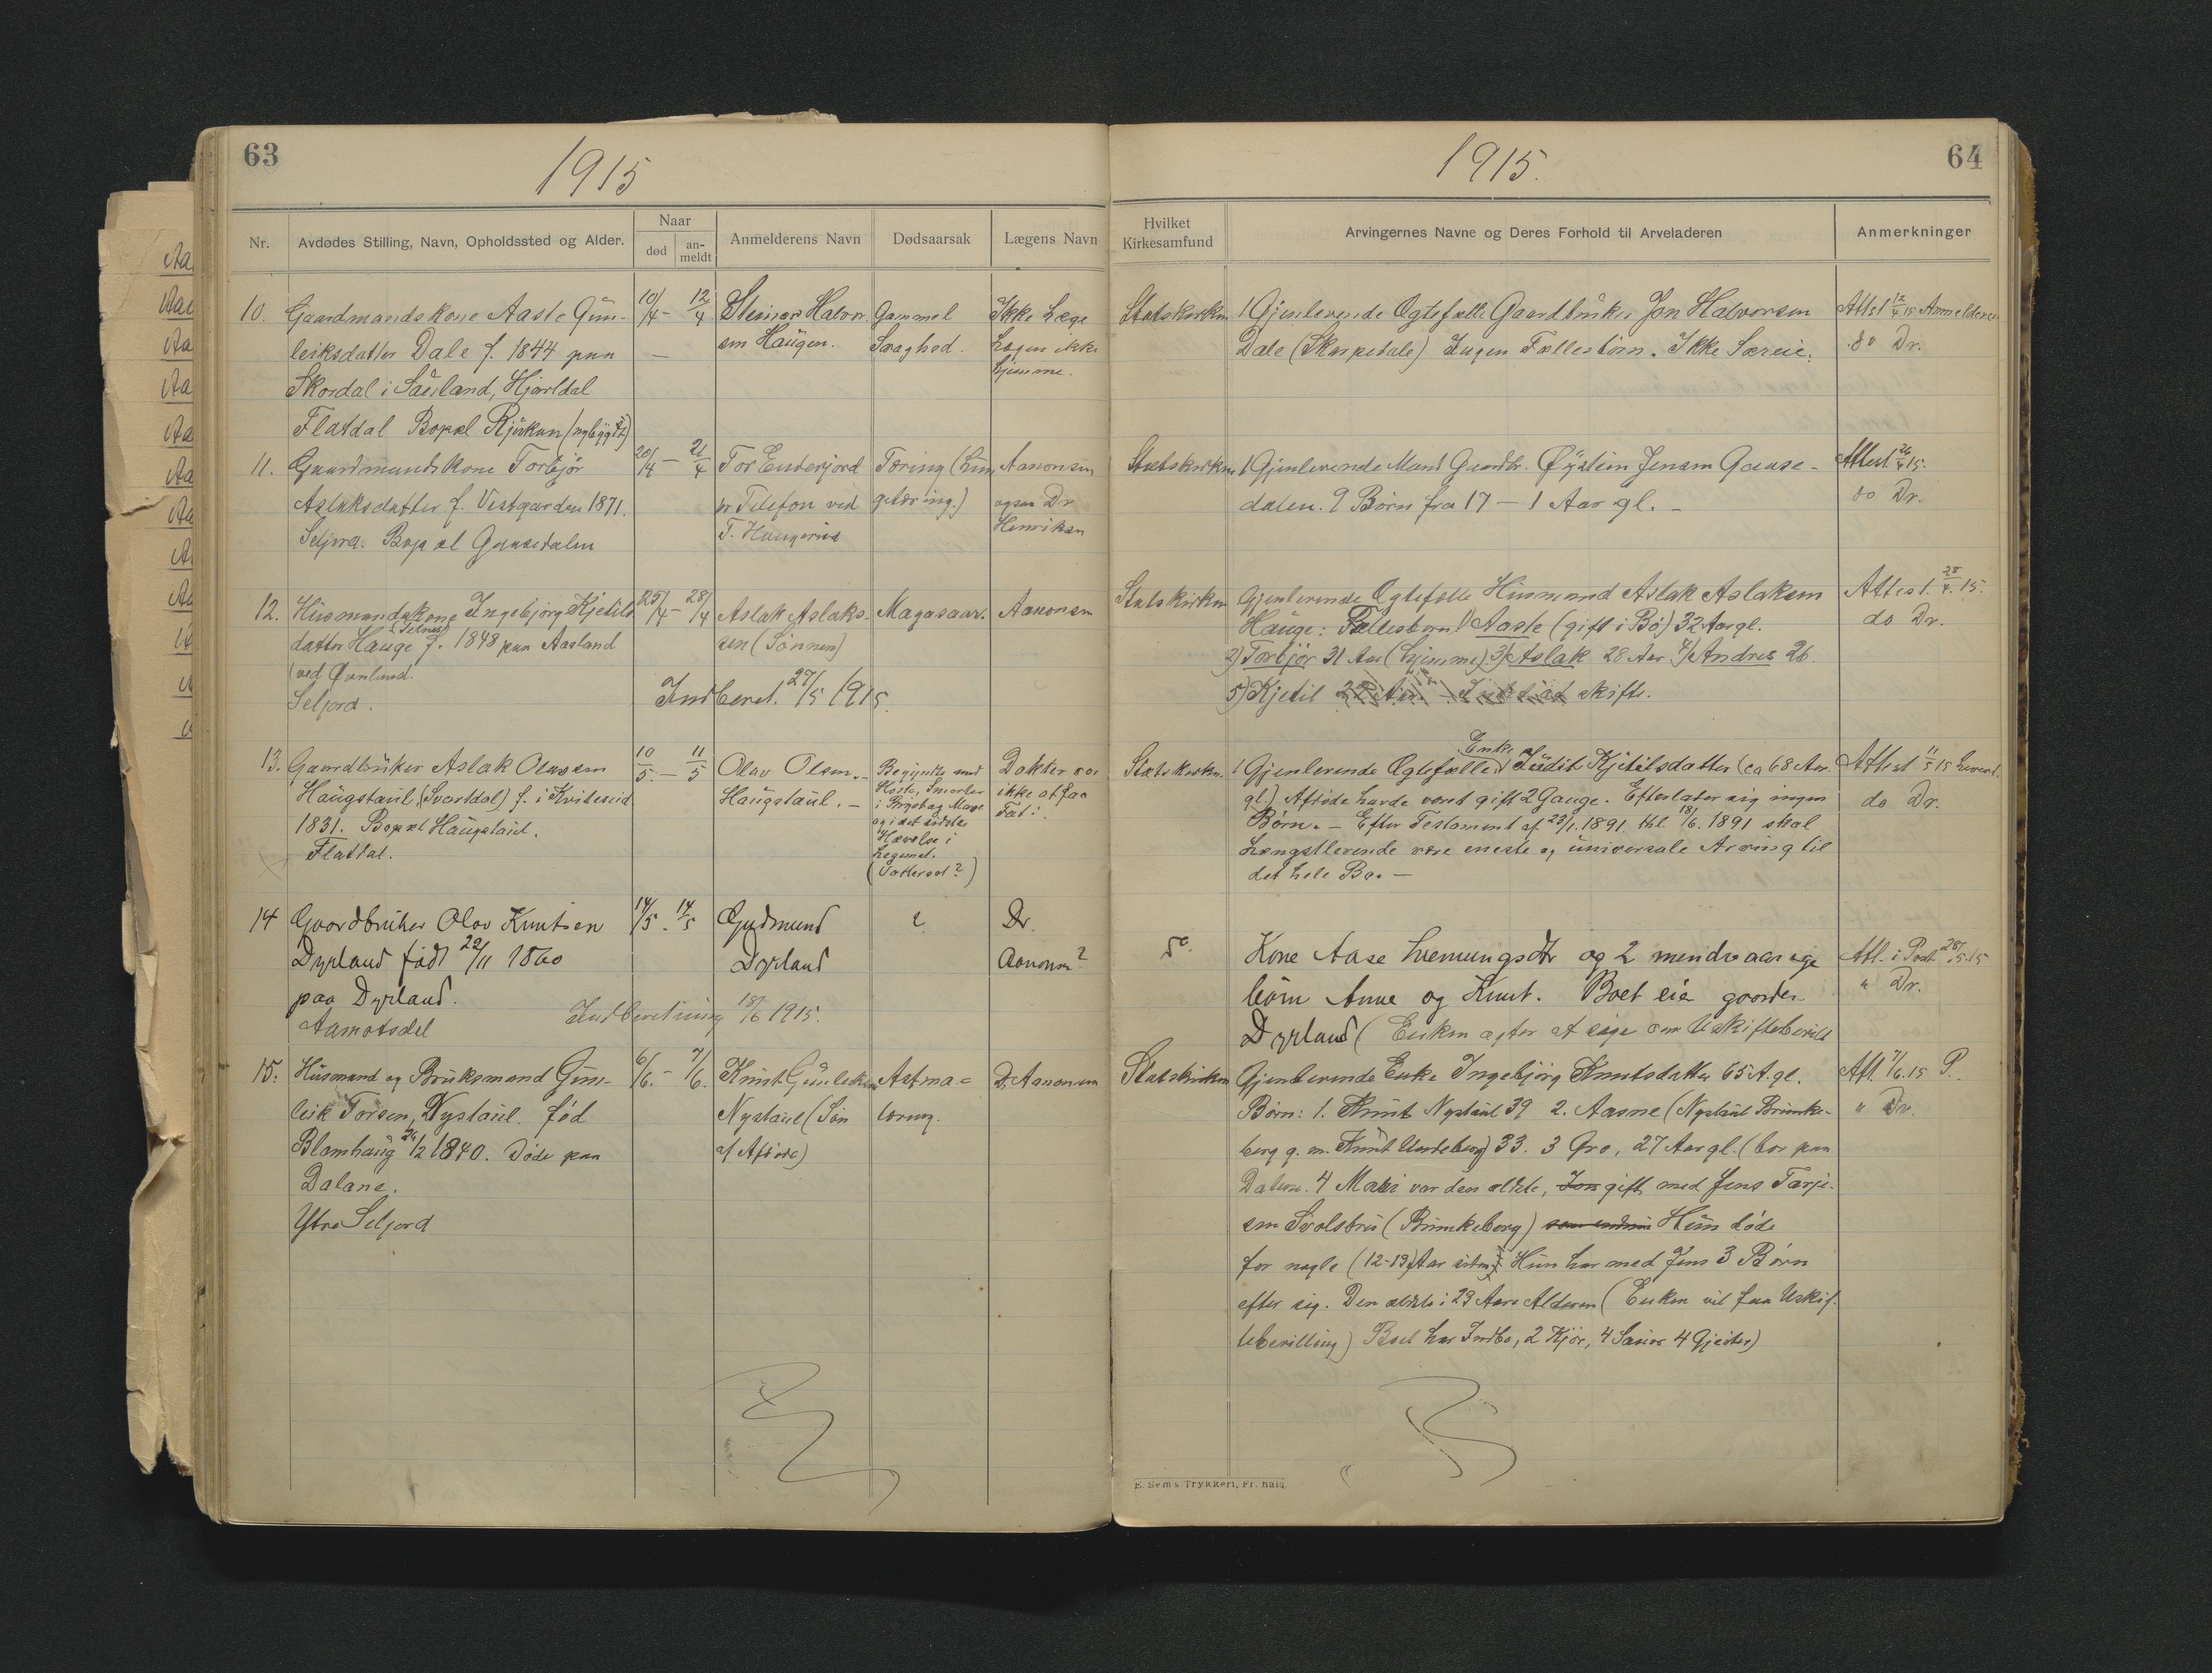 63
1915
Nr.
Avdødes Stilling, Navn, Opholdssted og Alder.
Naar
død
an-
meldt
Anmelderens Navn
Dødsaarsak
Lægens Navn
10. Gaardmandskone Aaste Gun-
leiksdatter Dale f. 1844 paa
Skordal i Sauland, Hjartdal
Flatdal Bopæl Rjukan (nybygt)
10/4 - 12/4
Steinar Halvor-
sen Haugen.
Gammel
Svaghed.
Ikke Læge
Lægen ikke
hjemme.
11. Gaardmandskone Torbjør
Aslaksdatter f. Vestgarden 1871.
Seljord. Bopæl Gausedalen
20/4 - 21/4
Tor Enderjord
pr Telefon ved
T. Haugerud
Tæring (Lun-
getæring.)
Aanonsen
ogsaa Dr
Henriksen
12. Husmandskone Ingebjørg Kjetils-
datter Hauge f. 1848 paa Aasland
(ved Ørnlund.
Seljord.
25/4 - 28/4
Aslak Aslaks-
sen (Sønnen)
Magasaar.
Aanonsen
Indberet. 27/5 1915.
13. Gaardbruker Aslak Olavsen
Haugstaul, (Svartdal) f. i Kviteseid
1831. Bopæl Haugstaul.
Flatdal.
10/5. - 11/5
Olav Olsen.
Haugstaul. -
Begynte med
Hoste, Smerter
i Bryst og Mave
og i det sidste
Hævelse i
Legemet.
(Vattersot?)
Dokter var
ikke at faa
Fat i.
14 Gaardbruker Olav Knutsen
Dyrland født 22/11 1860
paa Dyrland.
Aamotsdal
14/5. 14/5
Gudmund
Dyrland
?
Dr.
Aanonsen?
Indberetning 18/6 1915.
15. Husmand og Bruksmand Gun-
leik Torsen, Nystaul. fød
Blomhaug 24/2 1840. Døde paa
Dalane.
Ytre Seljord
6/6. - 7/6.
Knut Gunleiksen
Nystaul (Søn
af Afdøde)
Astma =
tæring.
Dr. Aanonsen
1915.
64
Hvilket
Kirkesamfund
Arvingernes Navne og Deres Forhold til Arveladeren
Anmerkninger
Statskirken
1 Gjenlevende Ægtefælle Gaardbruker Jon Halvorsen
Dale (Skarpedale) Ingen Fællesbørn. Ikke Særeie.
Attest 12/4 15 Anmelderen
do Dr.
Statskirken
1 Gjenlevende Mand Gaardbr. Øystein Jensen Gause-
dalen. 9 Børn fra 17 - 1 Aar gl. -
Attest. 26/4 15.
do Dr.
Statskirken
Gjenlevende Ægtefælle Husmand Aslak Aslaksen
Hauge: Fællesbørn: 1) Aaste (gift i Bø) 32 Aar gl.
2) Torbjør 31 Aar (hjemme) 3) Aslak 28 Aar 4) Andres 26.
5) Kjetil skifte.
Attest. 28/4. 15.
do Dr.
Statskirken.
1 Gjenlevende Ægtefælle Enke Judit Kjetilsdatter (ca 68 Aar.
gl.) Afdøde havde været gift 2 Gange. Efterlater sig ingen
Børn. - Efter Testament af 23/1. 1891. thl. 18/6. 1891 skal
Længstlevende være eneste og universale Arving til
det hele Bo. -
Attest 11/5 15 Levert.
do Dr.
do.
Kone Aase og 2 mindreaarige
børn Anne og Knut. Boet eier gaarden
Dyrland (Enken agter at søge om Uskiftebevill
Att. i Post 28/5.15
" Dr.
Statskirken
Gjenlevende Enke Ingebjørg Knutsdatter 65 A. gl.
Børn: 1. Knut Nystaul 39 2. Aasne (Nystaul Brunke-
berg g. m. Knut Urdeberg) 33. 3 Gro, 27 Aar gl. (bor paa
Dalane. 4 Mari var den ældste, gift med Jens Tarje-
sen Svolsbru (Brunkeberg) Hun døde
for nogle (12-13) Aar siden Hun har med Jens 3 Børn
efter sig. Den ældste i 23 Aars Alderen (Enken vil faa Uskif-
tebevilling) Boet har Indbo, 2 Kjør, 4 Sauer 4 Gjeiter)
Att. 7/6. 15 P.
" Dr.
E. Sem's Trykkeri, Fr. hald